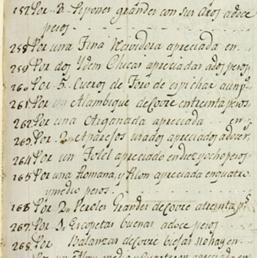 257 Por 3. Pipones grandes con sus Aros adoce
pesos
258 Por una Tina Navidora apreciada en
259 Por dos Ydem Chicas apreciadas ados pesos
260 Por 5. Cueros de Toro de espichar aun p.º
261 Por un Alambique de Cobre entreinta pesos
262 Por una Arganada apreciada en
263 Por 2. usados apreciados
164 Por un Fotel apreciado en diez y ocho pesos
165 Por una Romana, y Pilon apreciada en quatro
y medio pesos
166 Por 2. Peroles Grandes de Cobre atreinta p.s
267 Por 3. Escopetas buenas adoce pesos
268 Por Balanzas de Cobre viejas no hay en
Por un y apreciado en